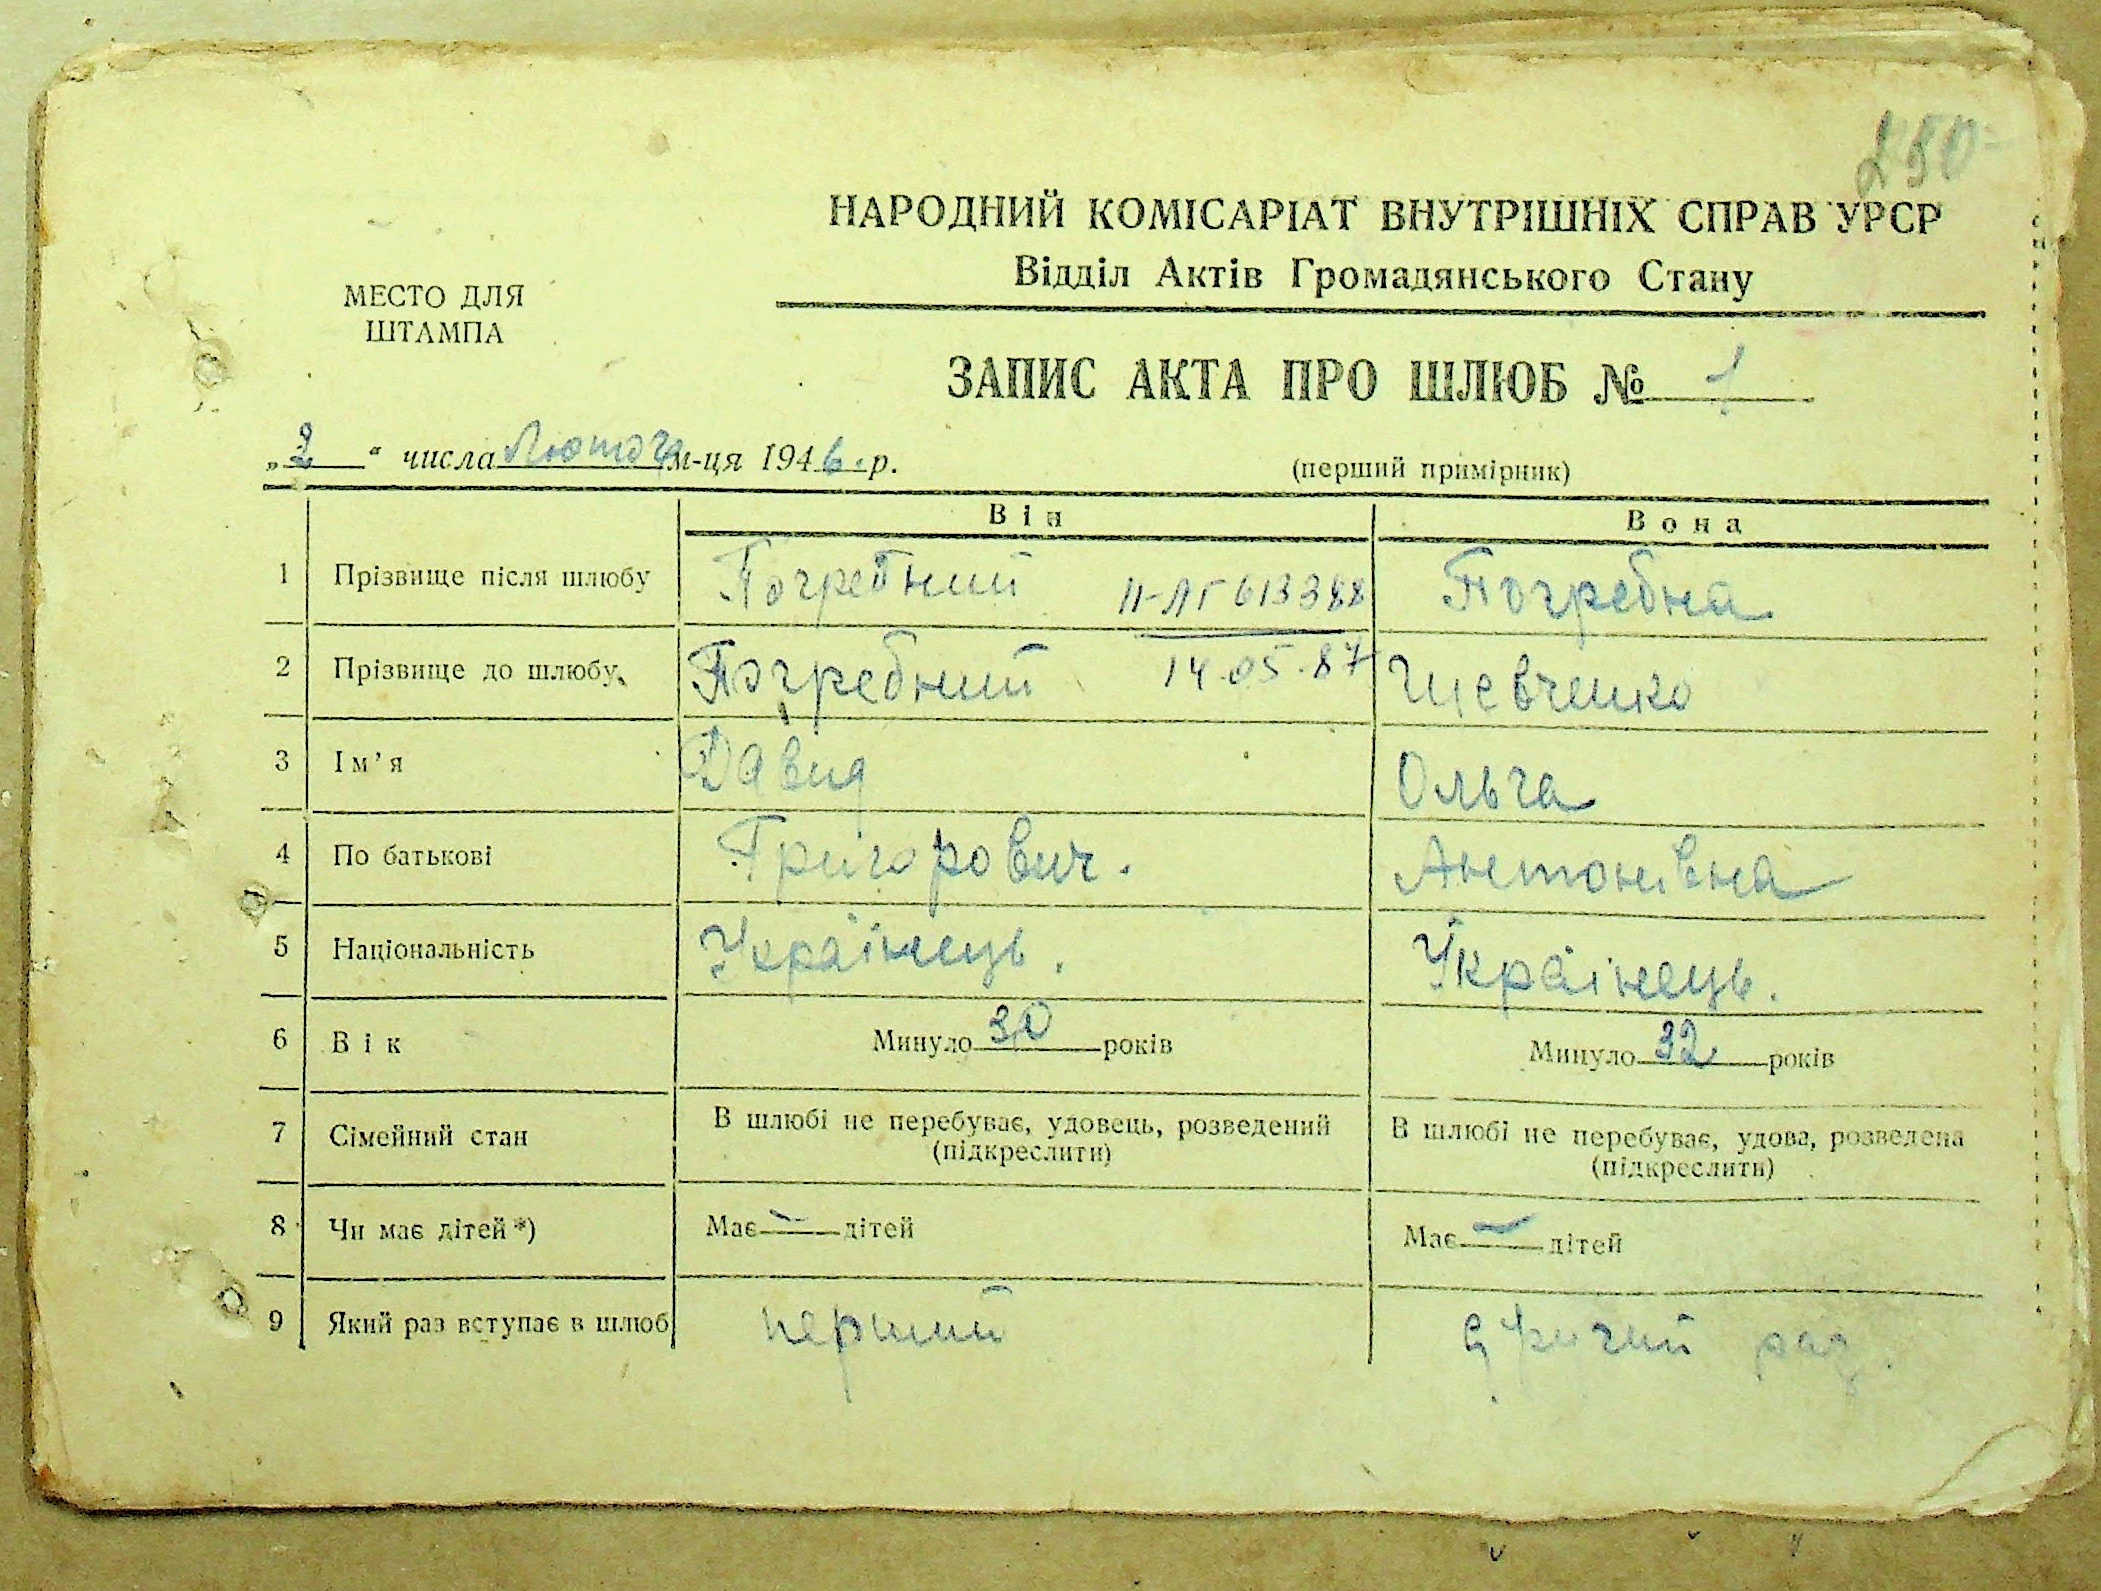 250
НАРОДНИЙ КОМІСАРІАТ ВНУТРІШНІХ СПРАВ УРСР
Відділ Актів Громадянського Стану
МЕСТО ДЛЯ
ШТАМПА
ЗАПИС АКТА ПРО ШЛЮБ № 1
„2“ числа Лютого м-ця 1946 р.
(перший примірник)
Він Вона
1 Прізвище після шлюбу Погребний ІІ-АГ 613388 Погребна
2 Прізвище до шлюбу Погребний 14.05.87 Шевченко
3 Ім’я Давид Ольга
4 По батькові Григорович. Антонівна
5 Національність Українець. Українець.
6 Вік Минуло 30 років Минуло 32 років
7 Сімейний стан В шлюбі не перебуває, удовець, розведений (підкреслити) В шлюбі не перебуває, удова, розведена (підкреслити)
8 Чи має дітей *) Має — дітей Має — дітей
9 Який раз вступає в шлюб перший раз.